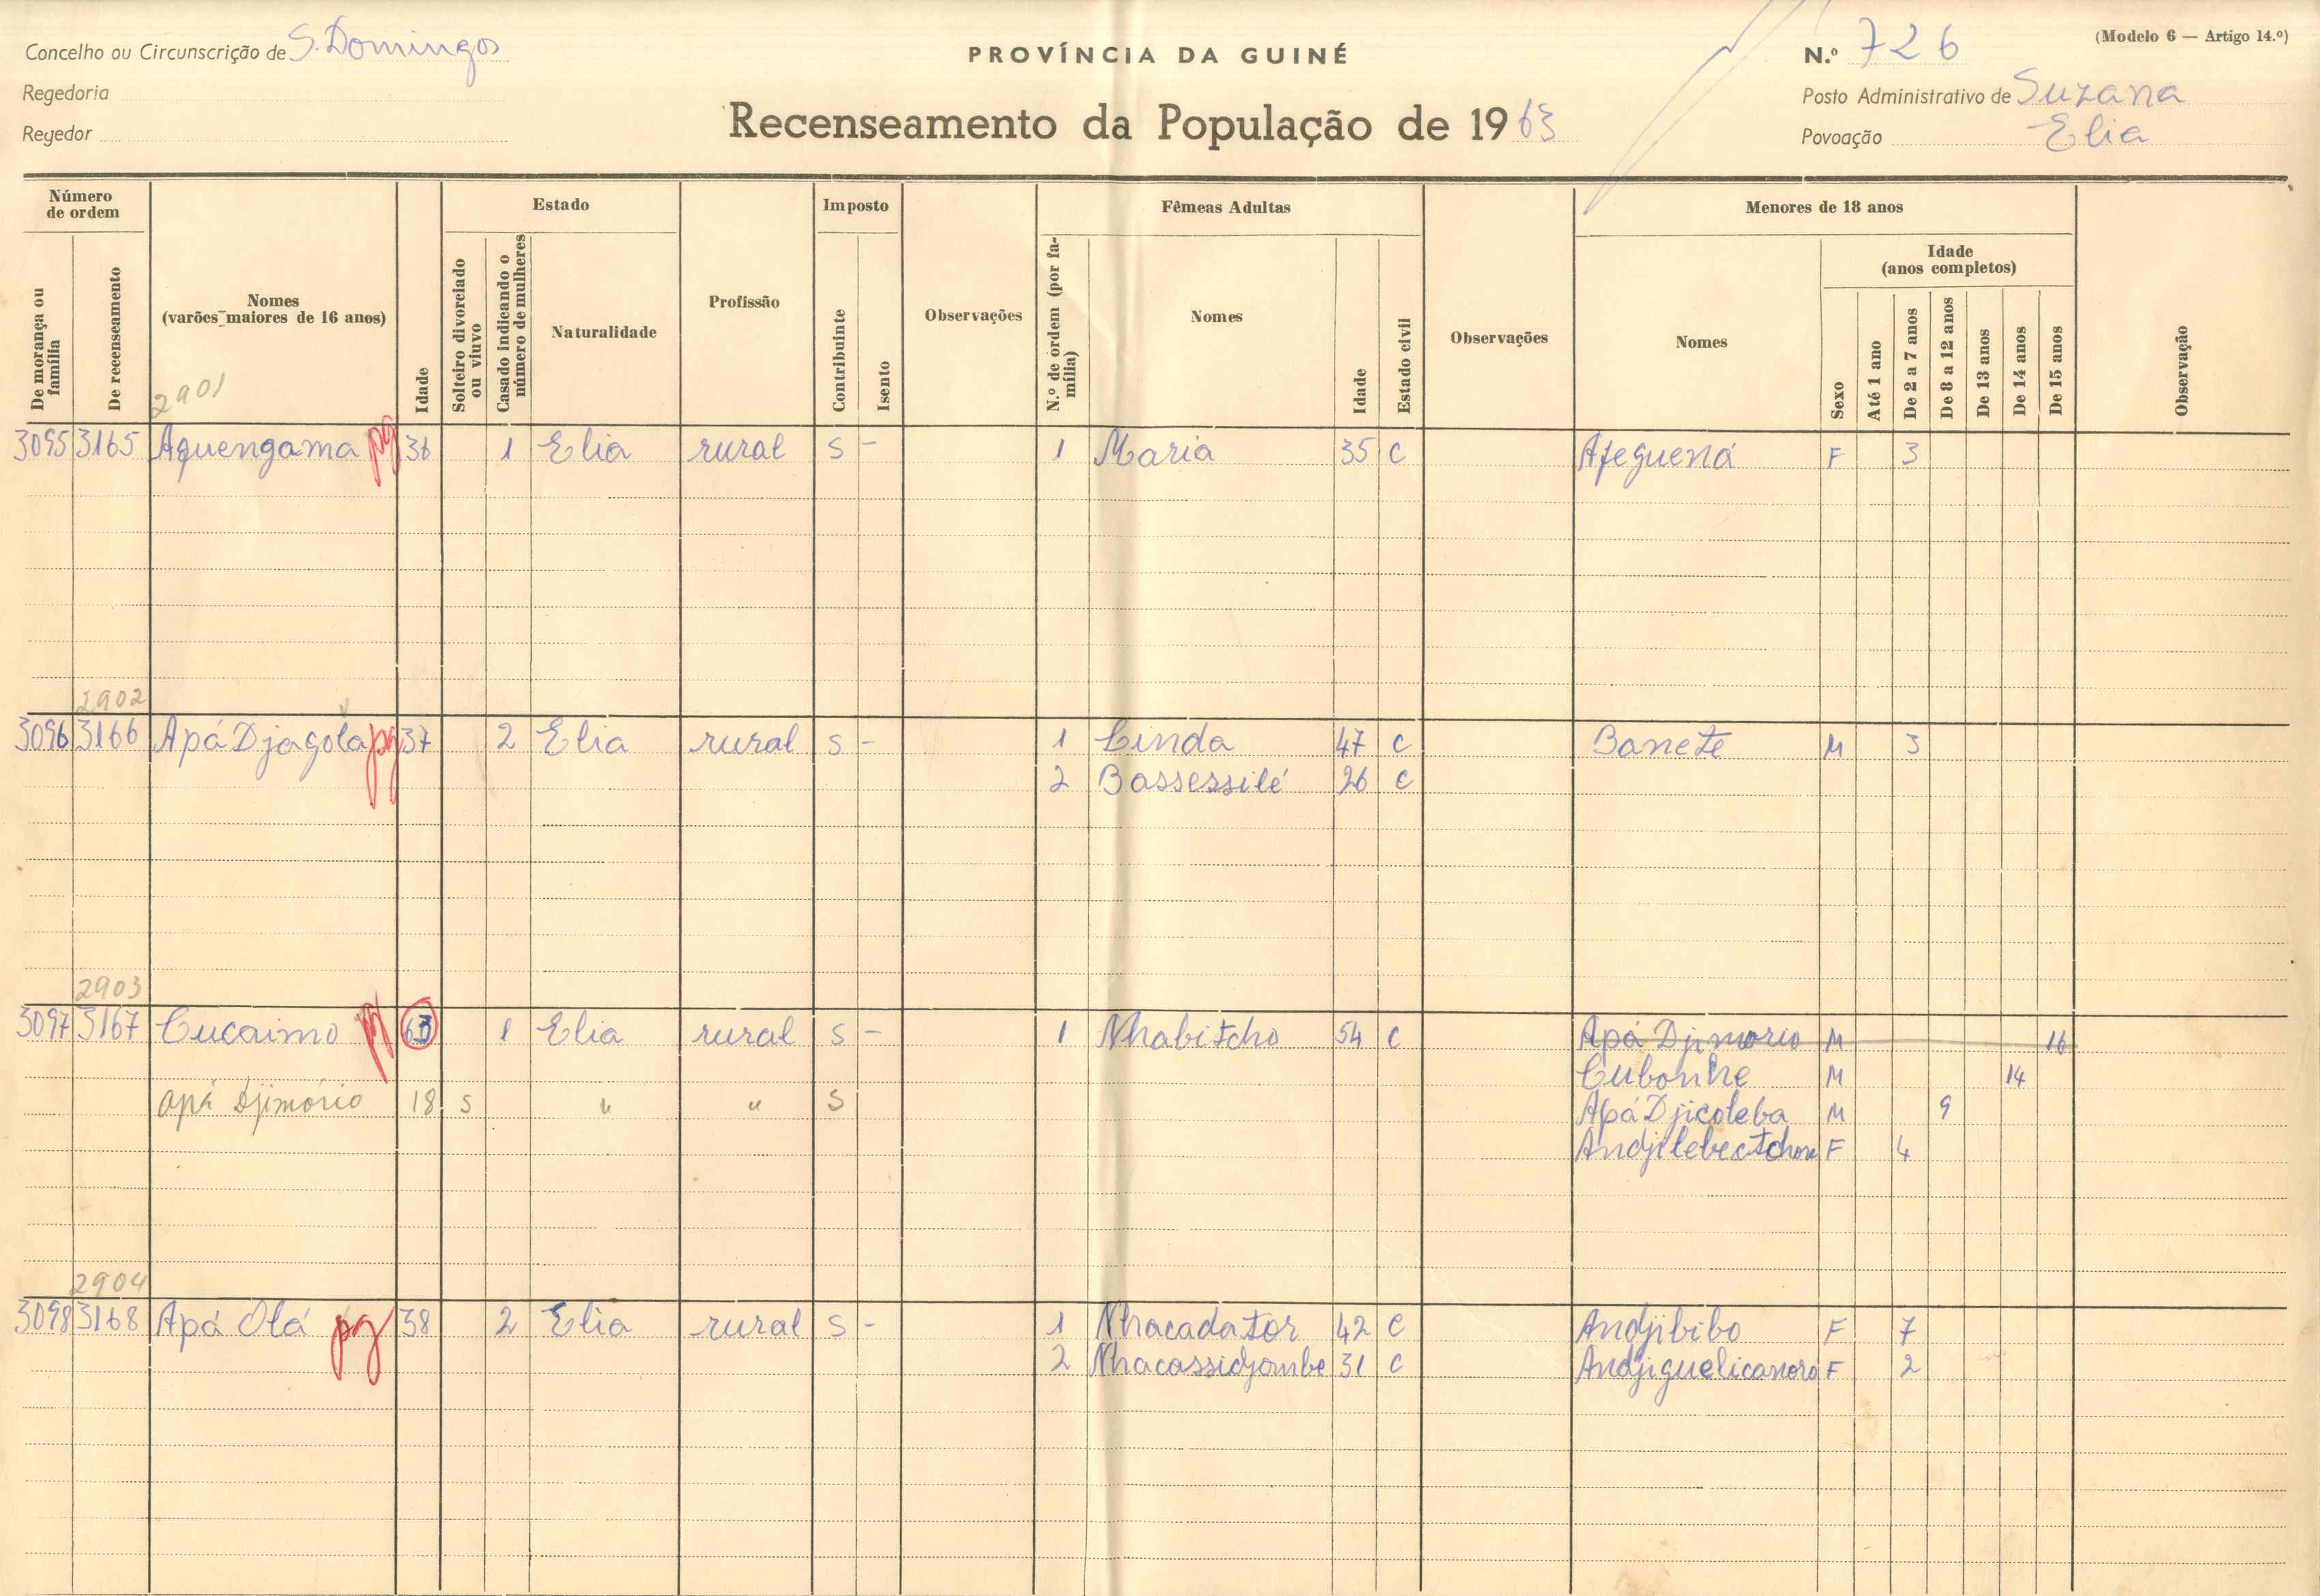 Concelho ou Circunscrição de S. Domingos
PROVÍNCIA DA GUINÉ
N.º 726
(Modelo 6 — Artigo 14.º)
Regedoria
Recenseamento da População de 1963
Posto Administrativo de Suzana
Regedor
Povoação Elia
Número de ordem
Estado
Imposto
Fêmeas Adultas
Menores de 18 anos
De morança ou família
De recenseamento
Nomes (varões maiores de 16 anos)
Idade
Solteiro divorciado ou viuvo
Casado indicando o número de mulheres
Naturalidade
Profissão
Contribuinte
Isento
Observações
N.º de órdem (por família)
Nomes
Idade
Estado civil
Observações
Nomes
Sexo
Idade (anos completos)
Até 1 ano
De 2 a 7 anos
De 8 a 12 anos
De 13 anos
De 14 anos
De 15 anos
Observação
2901
3095 3165 Aquengama pg 36 1 Elia rural S - 1 Maria 35 C Afeguená F 3
2902
3096 3166 Apá Djagola pg 37 2 Elia rural S - 1 Linda 47 C Banete M 3
2 Bassessilé 26 C
2903
3097 3167 Cucaimo pg 63 1 Elia rural S - 1 Nhabitcho 54 C Apá Djimorio M 16
Cubonhe M 14
Apá Djimório 18 S " " S Apá Djicoleba M 9
F 4
2904
3098 3168 Apá Olá pg 38 2 Elia rural S - 1 Nhacadator 42 C Andjibibo F 7
2 Nhacassidjambe 31 C Andjiguelicanoro F 2